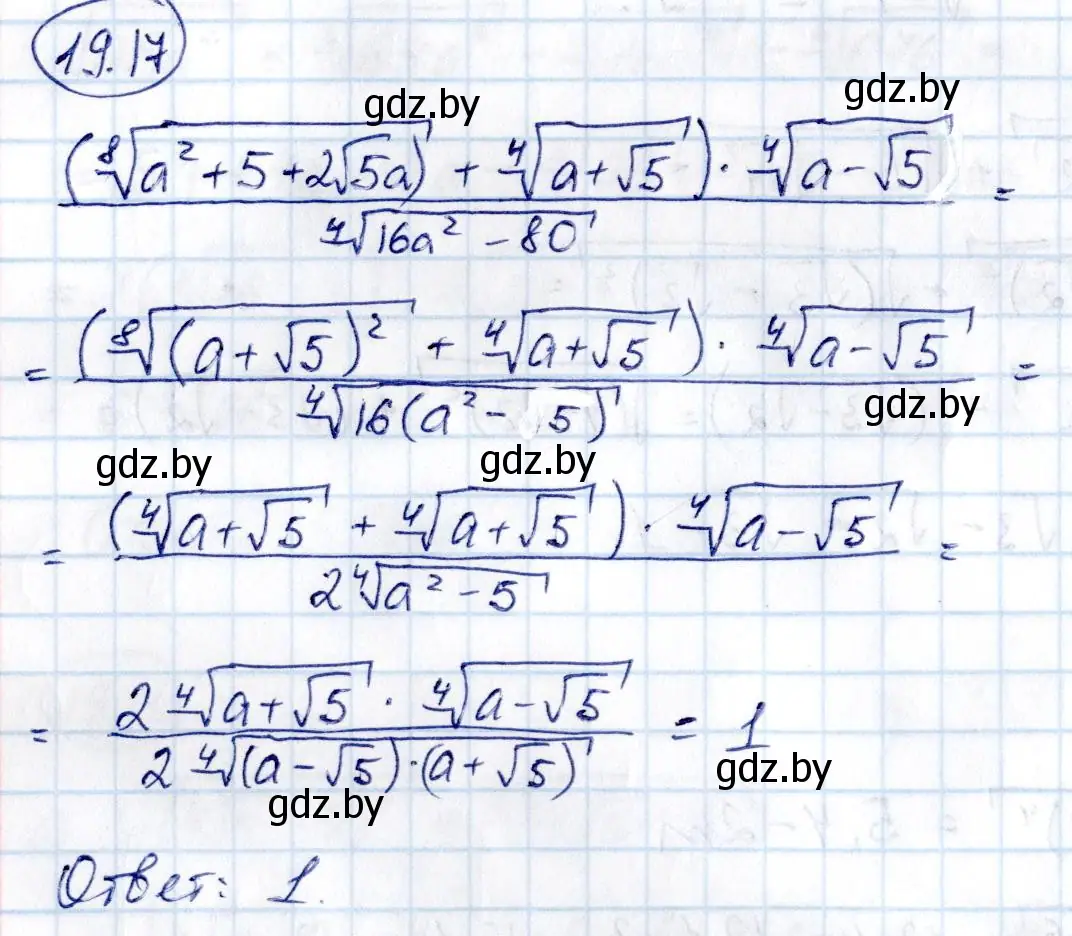 19.17
gdz.by
gdz.by
(⁸√(a² + 5 + 2√5a) + ⁴√(a + √5)) · ⁴√(a − √5) / ⁴√(16a² − 80) =
= (⁸√((a + √5)²) + ⁴√(a + √5)) · ⁴√(a − √5) / ⁴√(16(a² − 5)) =
gdz.by
gdz.by
gdz.by
= (⁴√(a + √5) + ⁴√(a + √5)) · ⁴√(a − √5) / 2⁴√(a² − 5) =
= 2⁴√(a + √5) · ⁴√(a − √5) / 2⁴√((a − √5)·(a + √5)) = 1
gdz.by
gdz.by
Ответ: 1.